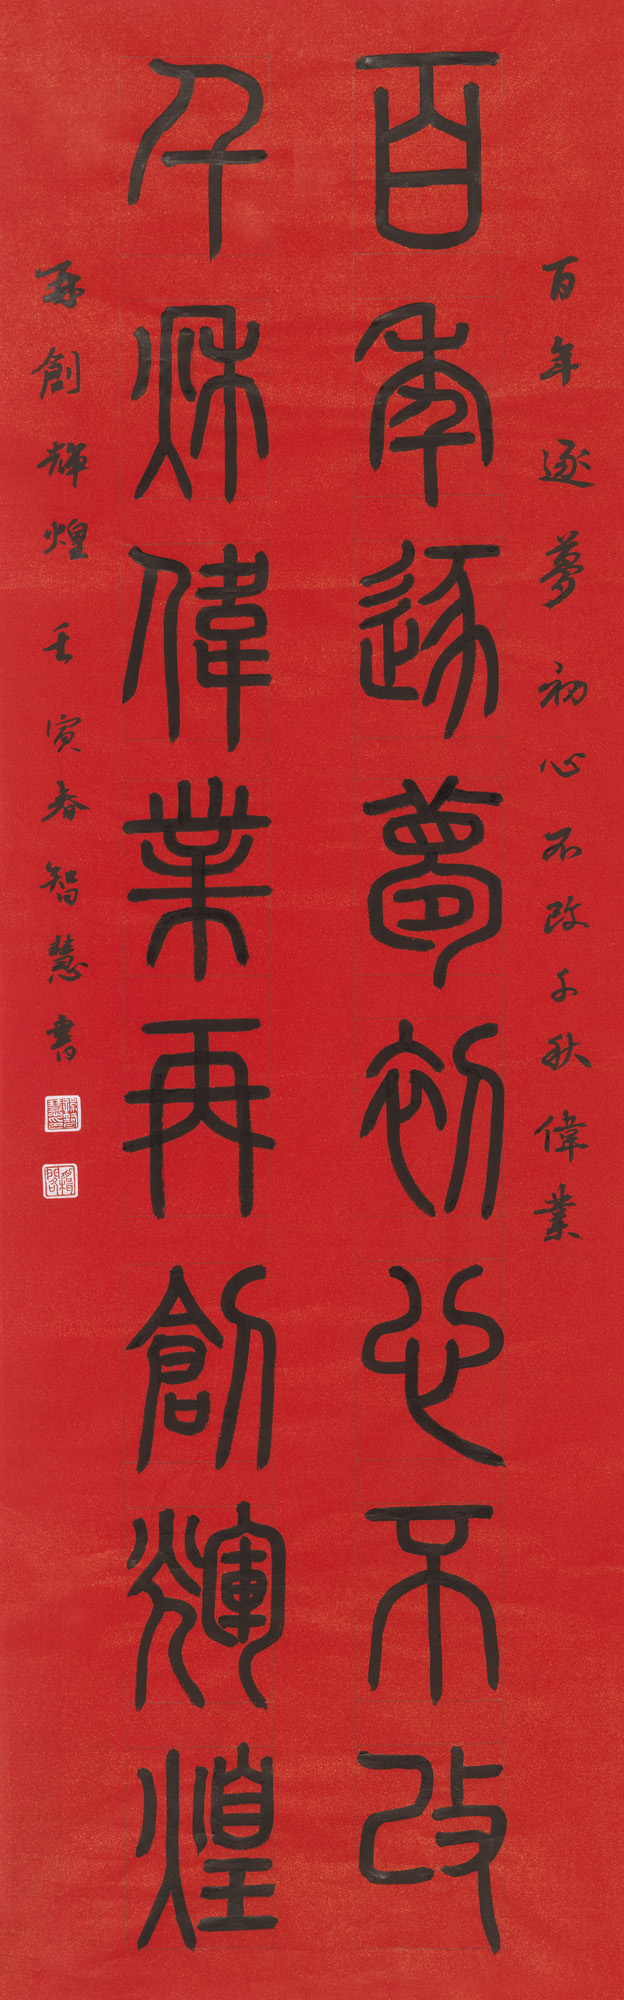 百年逐夢初心不改千秋偉業
百年逐夢初心不改
千秋偉業再創輝煌
再創輝煌壬寅春智慧書